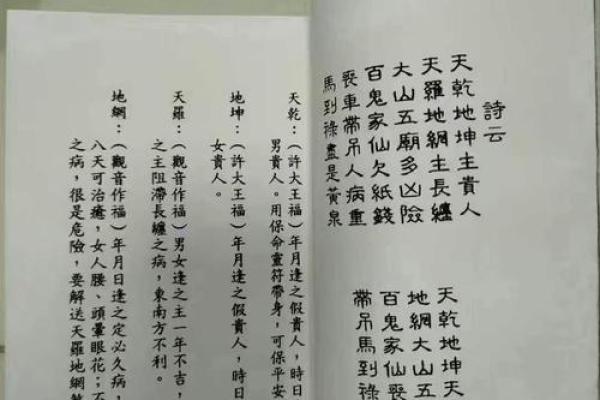 詩云
天乾地坤主貴人
天羅地網主長纏
大山五廟多凶險
百鬼家仙欠紙錢
喪車帶吊人病重
馬到祿盡是黃泉
天乾地坤天
地網大山五
百鬼家仙喪
帶吊馬到祿
天乾：（許大王福）年月逢之假貴人，時日
男貴人。用保命靈符帶身，可保平安
地坤：（許大王福）年月逢之假貴人，時日
女貴人。
天羅：（觀音作福）男女逢之主一年不吉，
之主阻滯長纏之病，東南方不利。
地網：（觀音作福）年月日逢之定必久病，
八天可治癒，女人腰、頭暈眼花；不
之病，很是危險，要解送天羅地網